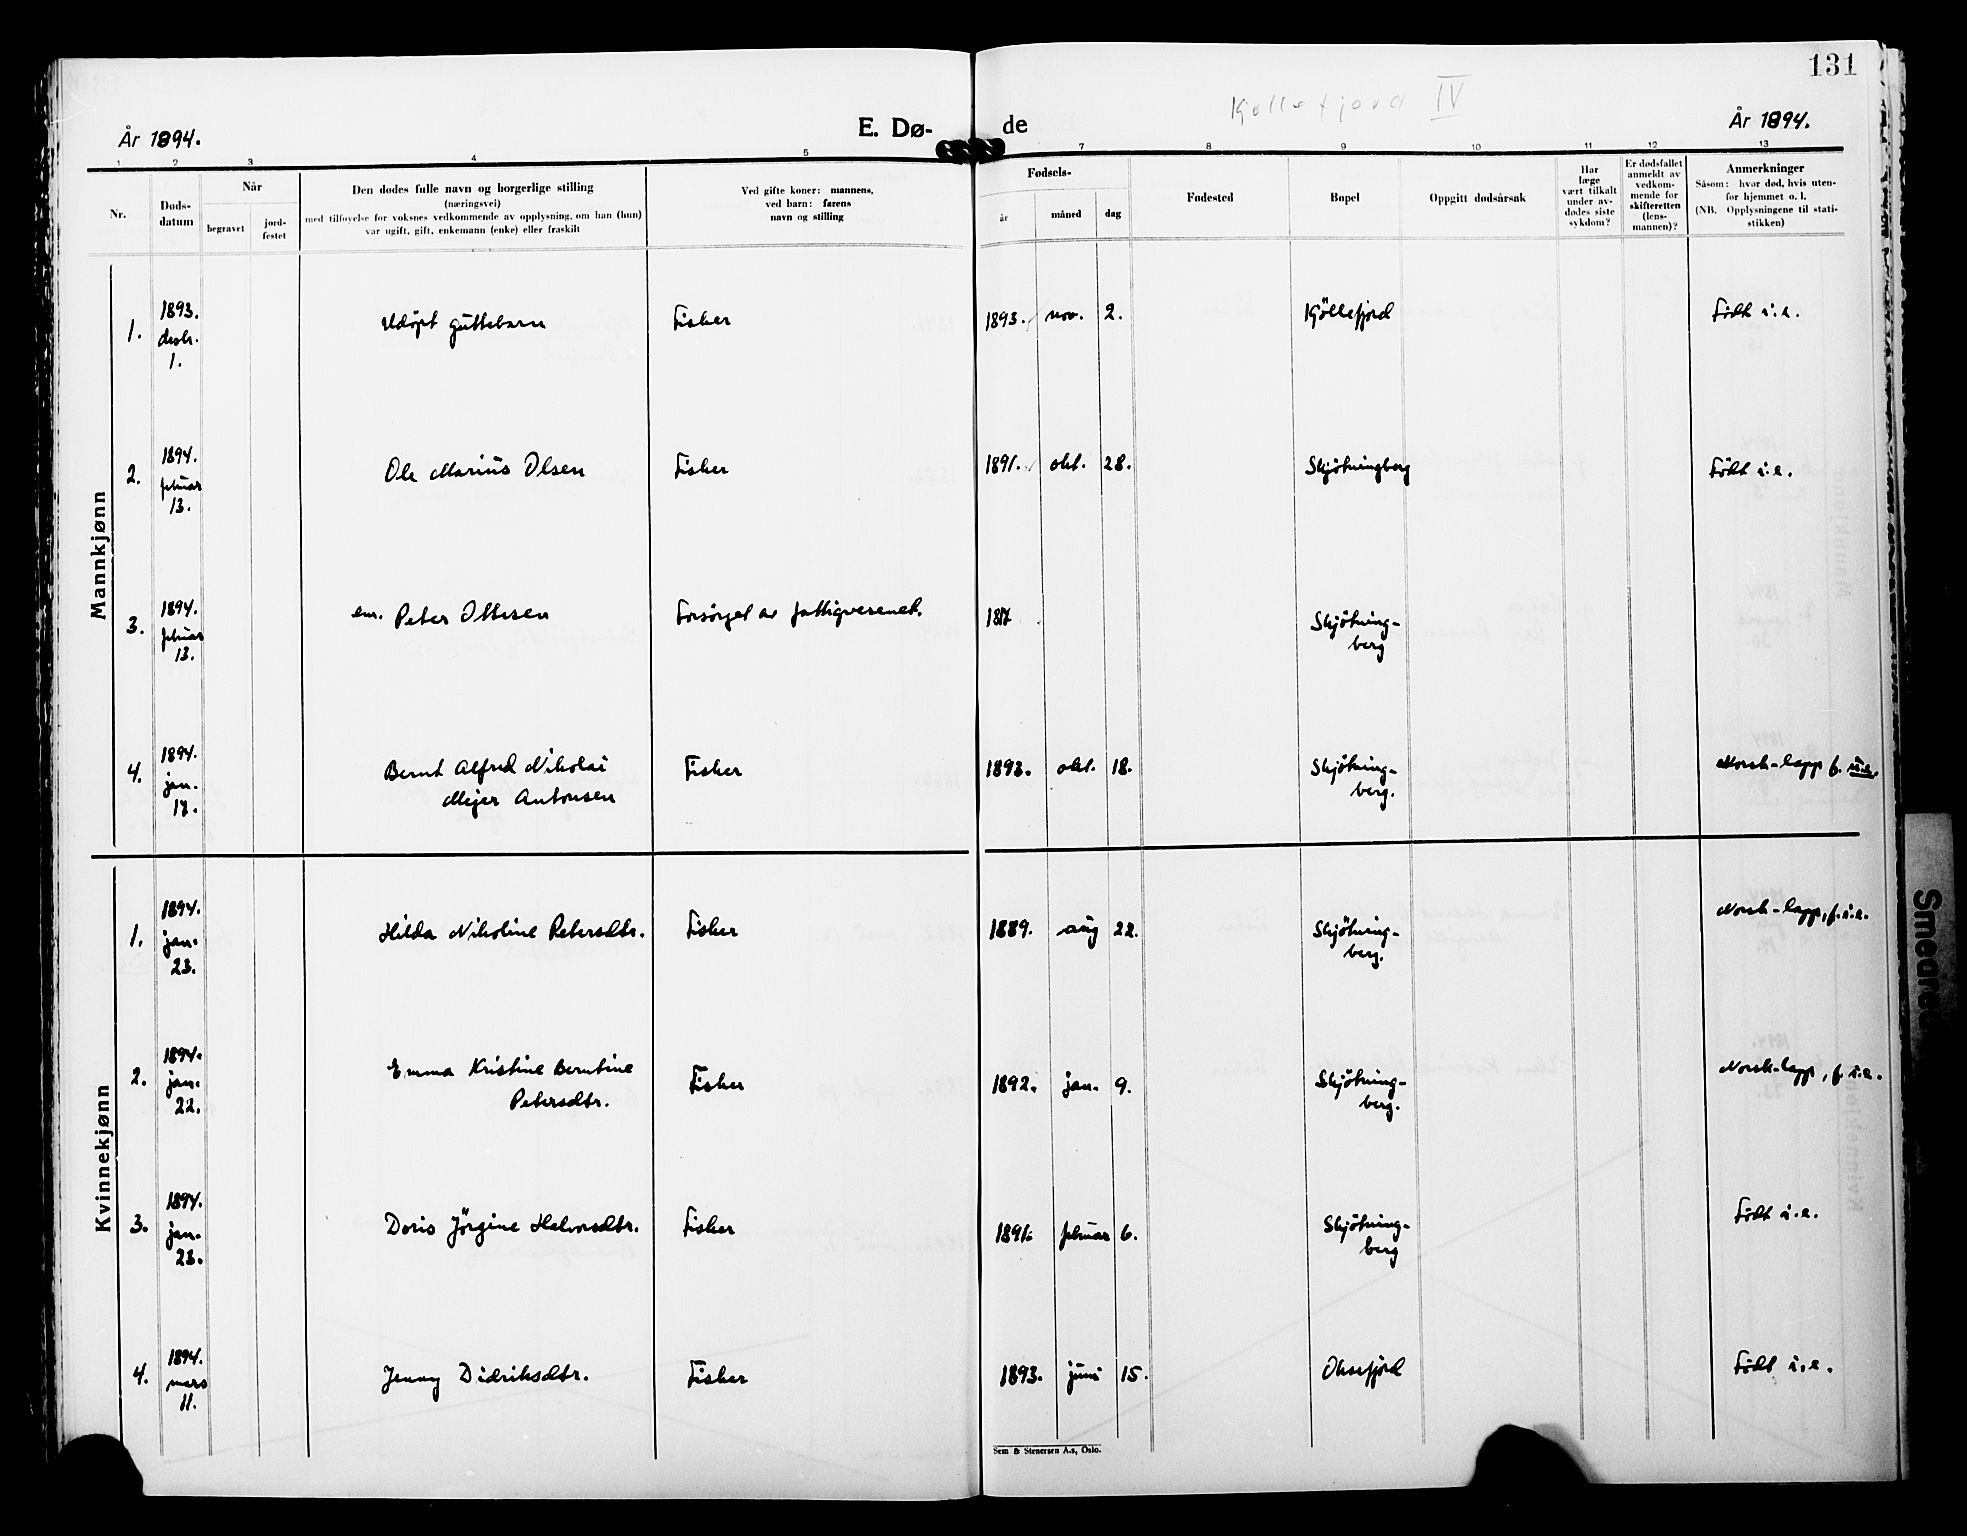 131
Kjøllefjord IV
År 1894.
E. Dø-
de
År 1894.
1 2 3 4 5 7 8 9 10 11 12 13
Nr.
Døds-
datum
Når
begravet
jord-
festet
Den dødes fulle navn og borgerlige stilling
(næringsvei)
med tilføyelse for voksnes vedkommende av opplysning, om han (hun)
var ugift, gift, enkemann (enke) eller fraskilt
Ved gifte koner: mannens,
ved barn: farens
navn og stilling
Fødsels-
år
måned
dag
Fødested
Bopel
Oppgitt dødsårsak
Har
læge
vært tilkalt
under av-
dødes siste
sykdom?
Er dødsfallet
anmeldt av
vedkom-
mende for
skifteretten
(lens-
mannen)?
Anmerkninger
Såsom: hvor død, hvis uten-
for hjemmet o. l.
(NB. Opplysningene til stati-
stikken)
Mannkjønn
1. 1893. desbr. 1. Udøpt guttebarn Fisker 1893. nov. 2. Kjöllefjord Født i.e.
2. 1894. februar 13. Ole Marius Olsen Fisker 1891. okt. 28. Skjötningberg Født i.e.
3. 1894. februar 13. em. Peter Ottesen Forsörget av fattigvesenet. 1817 Skjötning-
berg
4. 1894. jan. 17. Bernt Alfred Nikolai Fisker 1893. okt. 18. Skjötning- Norsk-lapp f. u.e.
Mejer Antonsen berg.
Kvinnekjønn
1. 1894. jan. 23. Hilda Nikoline Petersdtr. Fisker 1889. aug 22. Skjötning- Norsk-lapp, f. i.e.
berg.
2. 1894. jan. 22. Emma Kristine Berntine Fisker 1892. jan. 9. Skjötning- Norsk-lapp, f. i.e.
Petersdtr. berg.
3. 1894. jan. 23. Doris Jörgine Halvorsdtr. Fisker 1891. februar 6. Skjötning- Født i.e.
berg
4. 1894. mars 11. Jenny Didriksdtr. Fisker 1893. juni 15. Oksefjord Født i.e.
Sem & Stenersen A.s, Oslo.